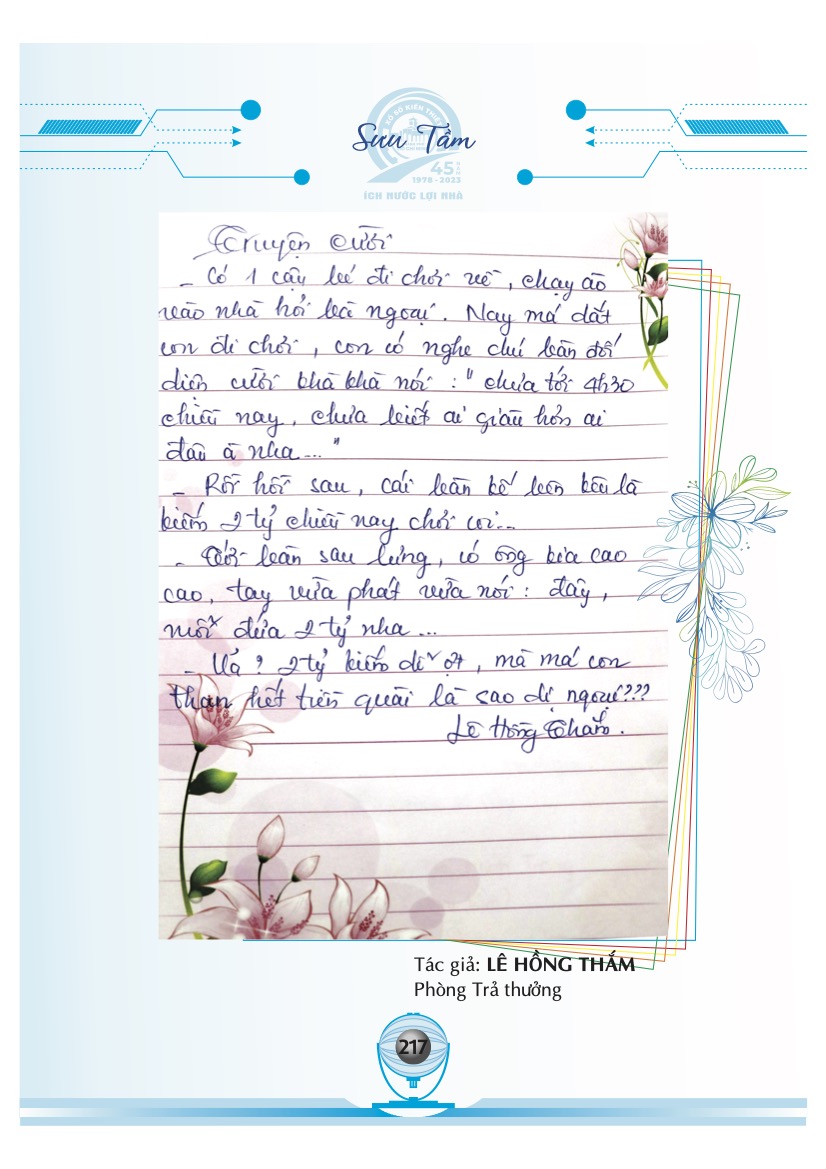 XỔ SỐ KIẾN THIẾT
Sưu Tầm
45 NĂM
1978 - 2023
ÍCH NƯỚC LỢI NHÀ
Truyện cười
- Có 1 cậu bé đi chơi về, chạy ào
vào nhà hỏi bà ngoại. Nay má dắt
con đi chơi, con có nghe chú bàn đối
diện cười khà khà nói : "chưa tới 4h30
chiều nay, chưa biết ai giàu hơn ai
đâu à nha..."
- Rồi hồi sau, cái bàn kế bên kêu là
kiếm 2 tỷ chiều nay chơi coi...
- Tới bàn sau lưng, có ông kia cao
cao, tay vừa phát vừa nói : đây,
mỗi đứa 2 tỷ nha ...
- Ủa ? 2 tỷ kiếm dễ ợt, mà má con
than hết tiền quài là sao dị ngoại???
Lê Hồng Thắm.
Tác giả: LÊ HỒNG THẮM
Phòng Trả thưởng
217